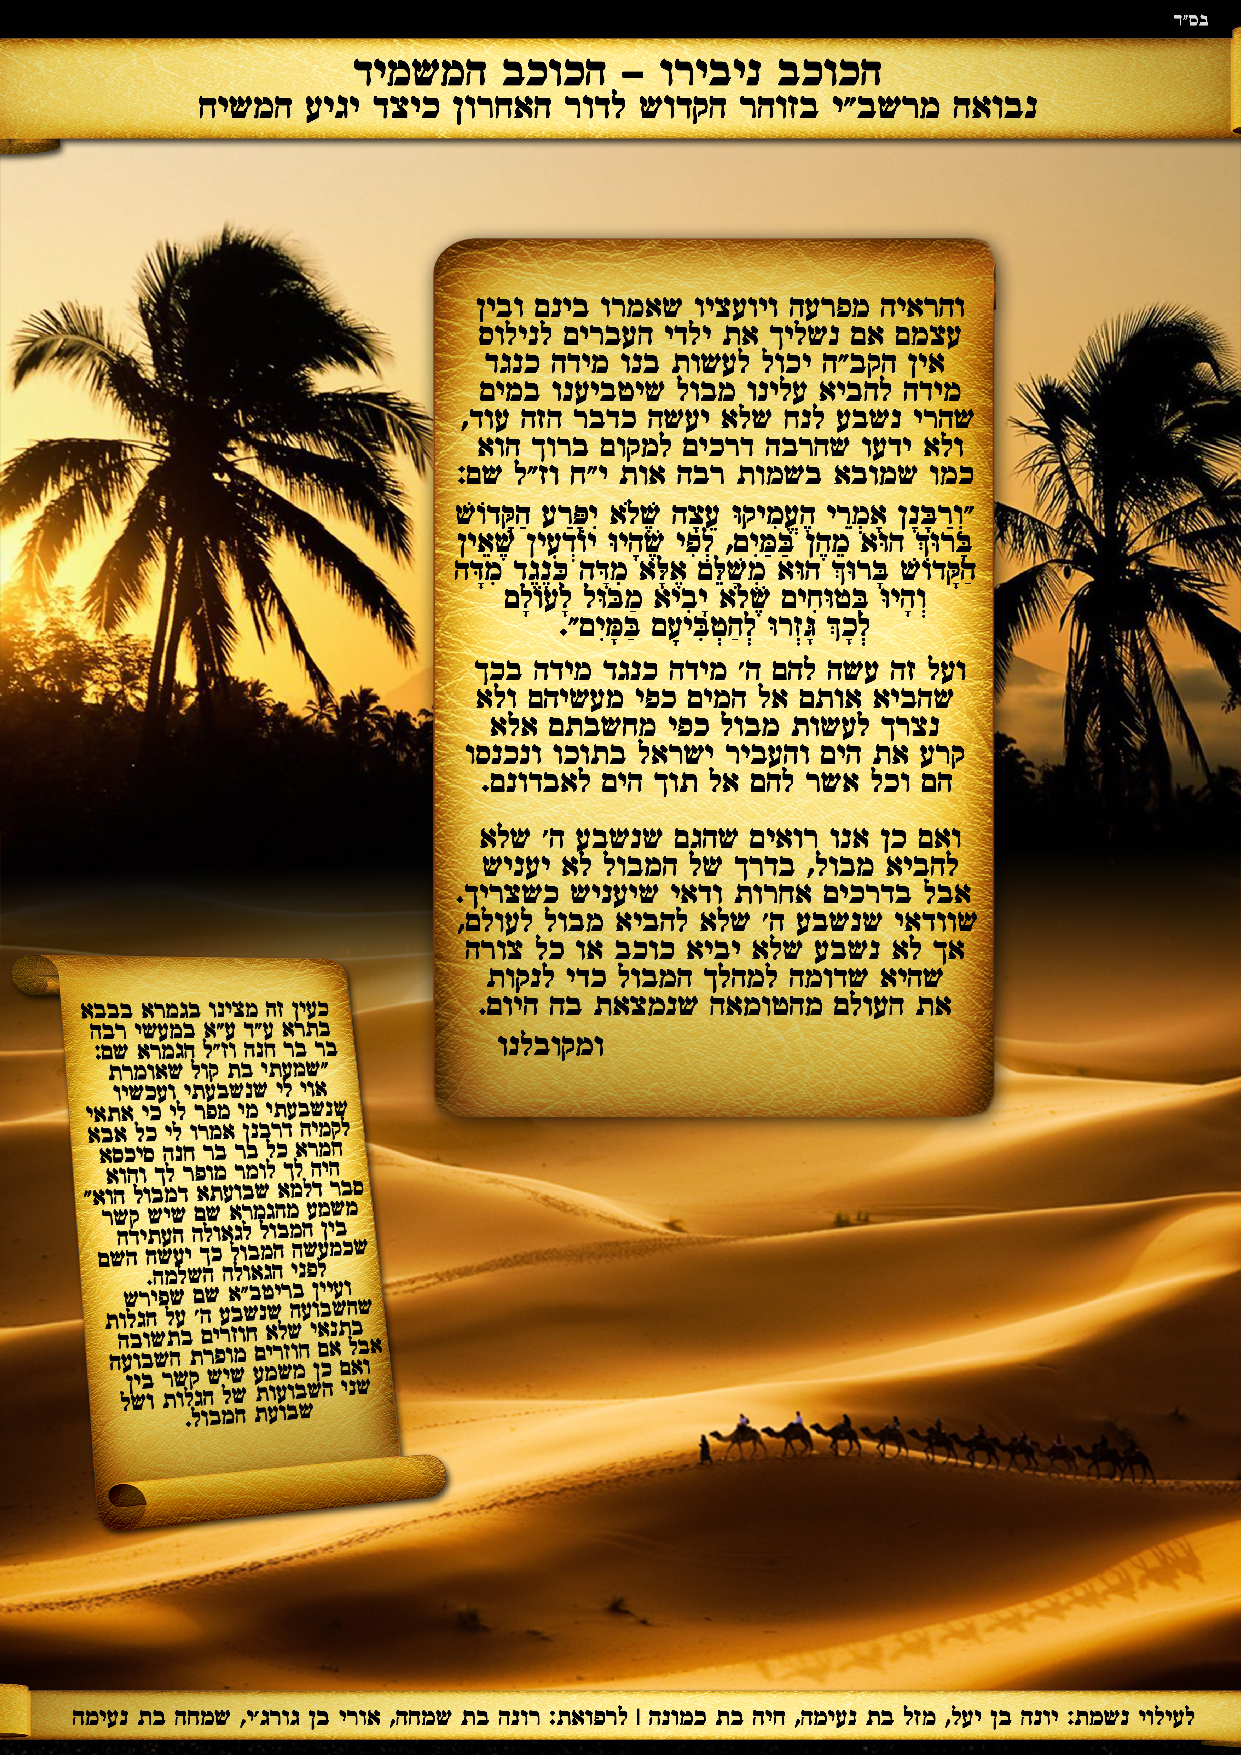 בס״ד
הכוכב ניבירו – הכוכב המשמיד
נבואה מרשב״י בזוהר הקדוש לדור האחרון כיצד יגיע המשיח
והראיה מפרעה ויועציו שאמרו בינם ובין
עצמם אם נשליך את ילדי העברים לנילוס
אין הקב״ה יכול לעשות בנו מידה כנגד
מידה להביא עלינו מבול שיטביענו במים
שהרי נשבע לנח שלא יעשה כדבר הזה עוד,
ולא ידעו שהרבה דרכים למקום ברוך הוא
כמו שמובא בשמות רבה אות י״ח וז״ל שם:
״וְרַבָּנָן אָמְרֵי הֶעֱמִיקוּ עֵצָה שֶׁלֹּא יִפָּרַע הַקָּדוֹשׁ
בָּרוּךְ הוּא מֵהֶן בַּמַּיִם, לְפִי שֶׁהָיוּ יוֹדְעִין שֶׁאֵין
הַקָּדוֹשׁ בָּרוּךְ הוּא מְשַׁלֵּם אֶלָּא מִדָּה כְּנֶגֶד מִדָּה
וְהָיוּ בְּטוּחִים שֶׁלֹּא יָבִיא מַבּוּל לָעוֹלָם
לְכָךְ גָּזְרוּ לְהַטְבִּיעָם בַּמָּיִם״.
ועל זה עשה להם ה׳ מידה כנגד מידה בכך
שהביא אותם אל המים כפי מעשיהם ולא
נצרך לעשות מבול כפי מחשבתם אלא
קרע את הים והעביר ישראל בתוכו ונכנסו
הם וכל אשר להם אל תוך הים לאבדונם.
ואם כן אנו רואים שהגם שנשבע ה׳ שלא
להביא מבול, בדרך של המבול לא יעניש
אבל בדרכים אחרות ודאי שיעניש כשצריך.
שוודאי שנשבע ה׳ שלא להביא מבול לעולם,
אך לא נשבע שלא יביא כוכב או כל צורה
שהיא שדומה למהלך המבול כדי לנקות
את העולם מהטומאה שנמצאת בה היום.
ומקובלנו
כעין זה מצינו בגמרא בבבא
בתרא ע״ד ע״א במעשי רבה
בר בר חנה וז״ל הגמרא שם:
״שמעתי בת קול שאומרת
אוי לי שנשבעתי ועכשיו
שנשבעתי מי מפר לי כי אתאי
לקמיה דרבנן אמרו לי כל אבא
חמרא כל בר בר חנה סיכסא
היה לך לומר מופר לך והוא
סבר דלמא שבועתא דמבול הוא״
משמע מהגמרא שם שיש קשר
בין המבול לגאולה העתידה
שכמעשה המבול כך יעשה השם
לפני הגאולה השלמה.
ועיין בריטב״א שם שפירש
שהשבועה שנשבע ה׳ על הגלות
בתנאי שלא חוזרים בתשובה
אבל אם חוזרים מופרת השבועה
ואם כן משמע שיש קשר בין
שני השבועות של הגלות ושל
שבועת המבול.
לעילוי נשמת: יונה בן יעל, מזל בת נעימה, חיה בת כמונה | לרפואת: רונה בת שמחה, אורי בן גורג׳י, שמחה בת נעימה